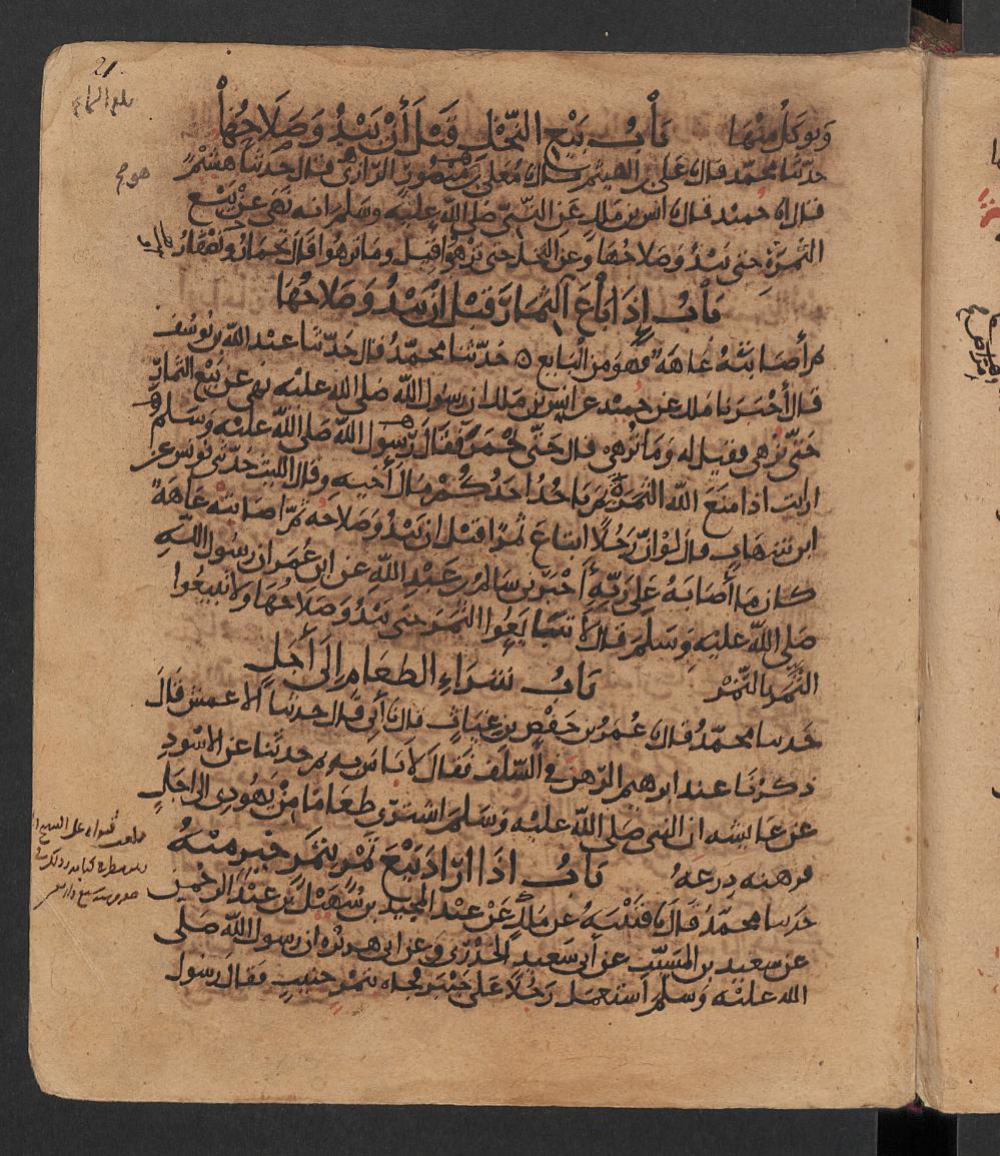 21
ويوكل منها باب بيع النخل قبل أن يبدو صلاحها
حدثنا محمد قال علي بن الهيثم معلى بن منصور الرازي قال حدثنا هشيم
قال انا حميد قال انس بن ملك عن النبي صلى الله عليه وسلم انه نهى عن بيع
الثمرة حتى يبدو صلاحها وعن النخل حتى يزهوا قيل وما يزهوا قال يحمار ويصفار
باب إذا باع الثمار قبل ان يبدو صلاحها
ثم أصابته عاهة فهو من البايع حدثنا محمد قال حدثنا عبد الله بن يوسف
قال أخبرنا ملك عن حميد عن انس بن ملك ان رسول الله صلى الله عليه نهى عن بيع الثمار
حتى تزهي فقيل له وما تزهي قال حتى تحمر فقال رسول الله صلى الله عليه وسلم
ارايت اذا منع الله الثمرة بم ياخذ احدكم مال أخيه وقال الليث حدثني يونس عن
ابن شهاب قال لو ان رجلا ابتاع ثمرا قبل ان يبدو صلاحه ثم اصابته عاهة
كان ما أصابه على ربه أخبرني سالم بن عبد الله عن ابن عمر ان رسول الله
صلى الله عليه وسلم قال لا تتبايعوا الثمر حتى يبدو صلاحها ولا تبيعوا
الثمر بالتمر باب شراء الطعام إلى أجل
حدثنا محمد قال عمر بن حفص بن غياث قال أبي قال حدثنا الاعمش قال
ذكرنا عند ابرهيم الرهن في السلف فقال لا باس به ثم حدثنا عن الاسود
عن عايشه ان النبي صلى الله عليه وسلم اشترى طعاما من يهودي الى اجل
فرهنه درعه باب اذا اراد بيع تمر بتمر خير منه
حدثنا محمد قال قتيبة عن ملك عن عبد المجيد بن سهيل بن عبد الرحمن
عن سعيد بن المسيب عن أبي سعيد الخدري وعن ابي هريره ان رسول الله صلى
الله عليه وسلم استعمل رجلا على خيبر فجاه بتمر جنيب فقال رسول